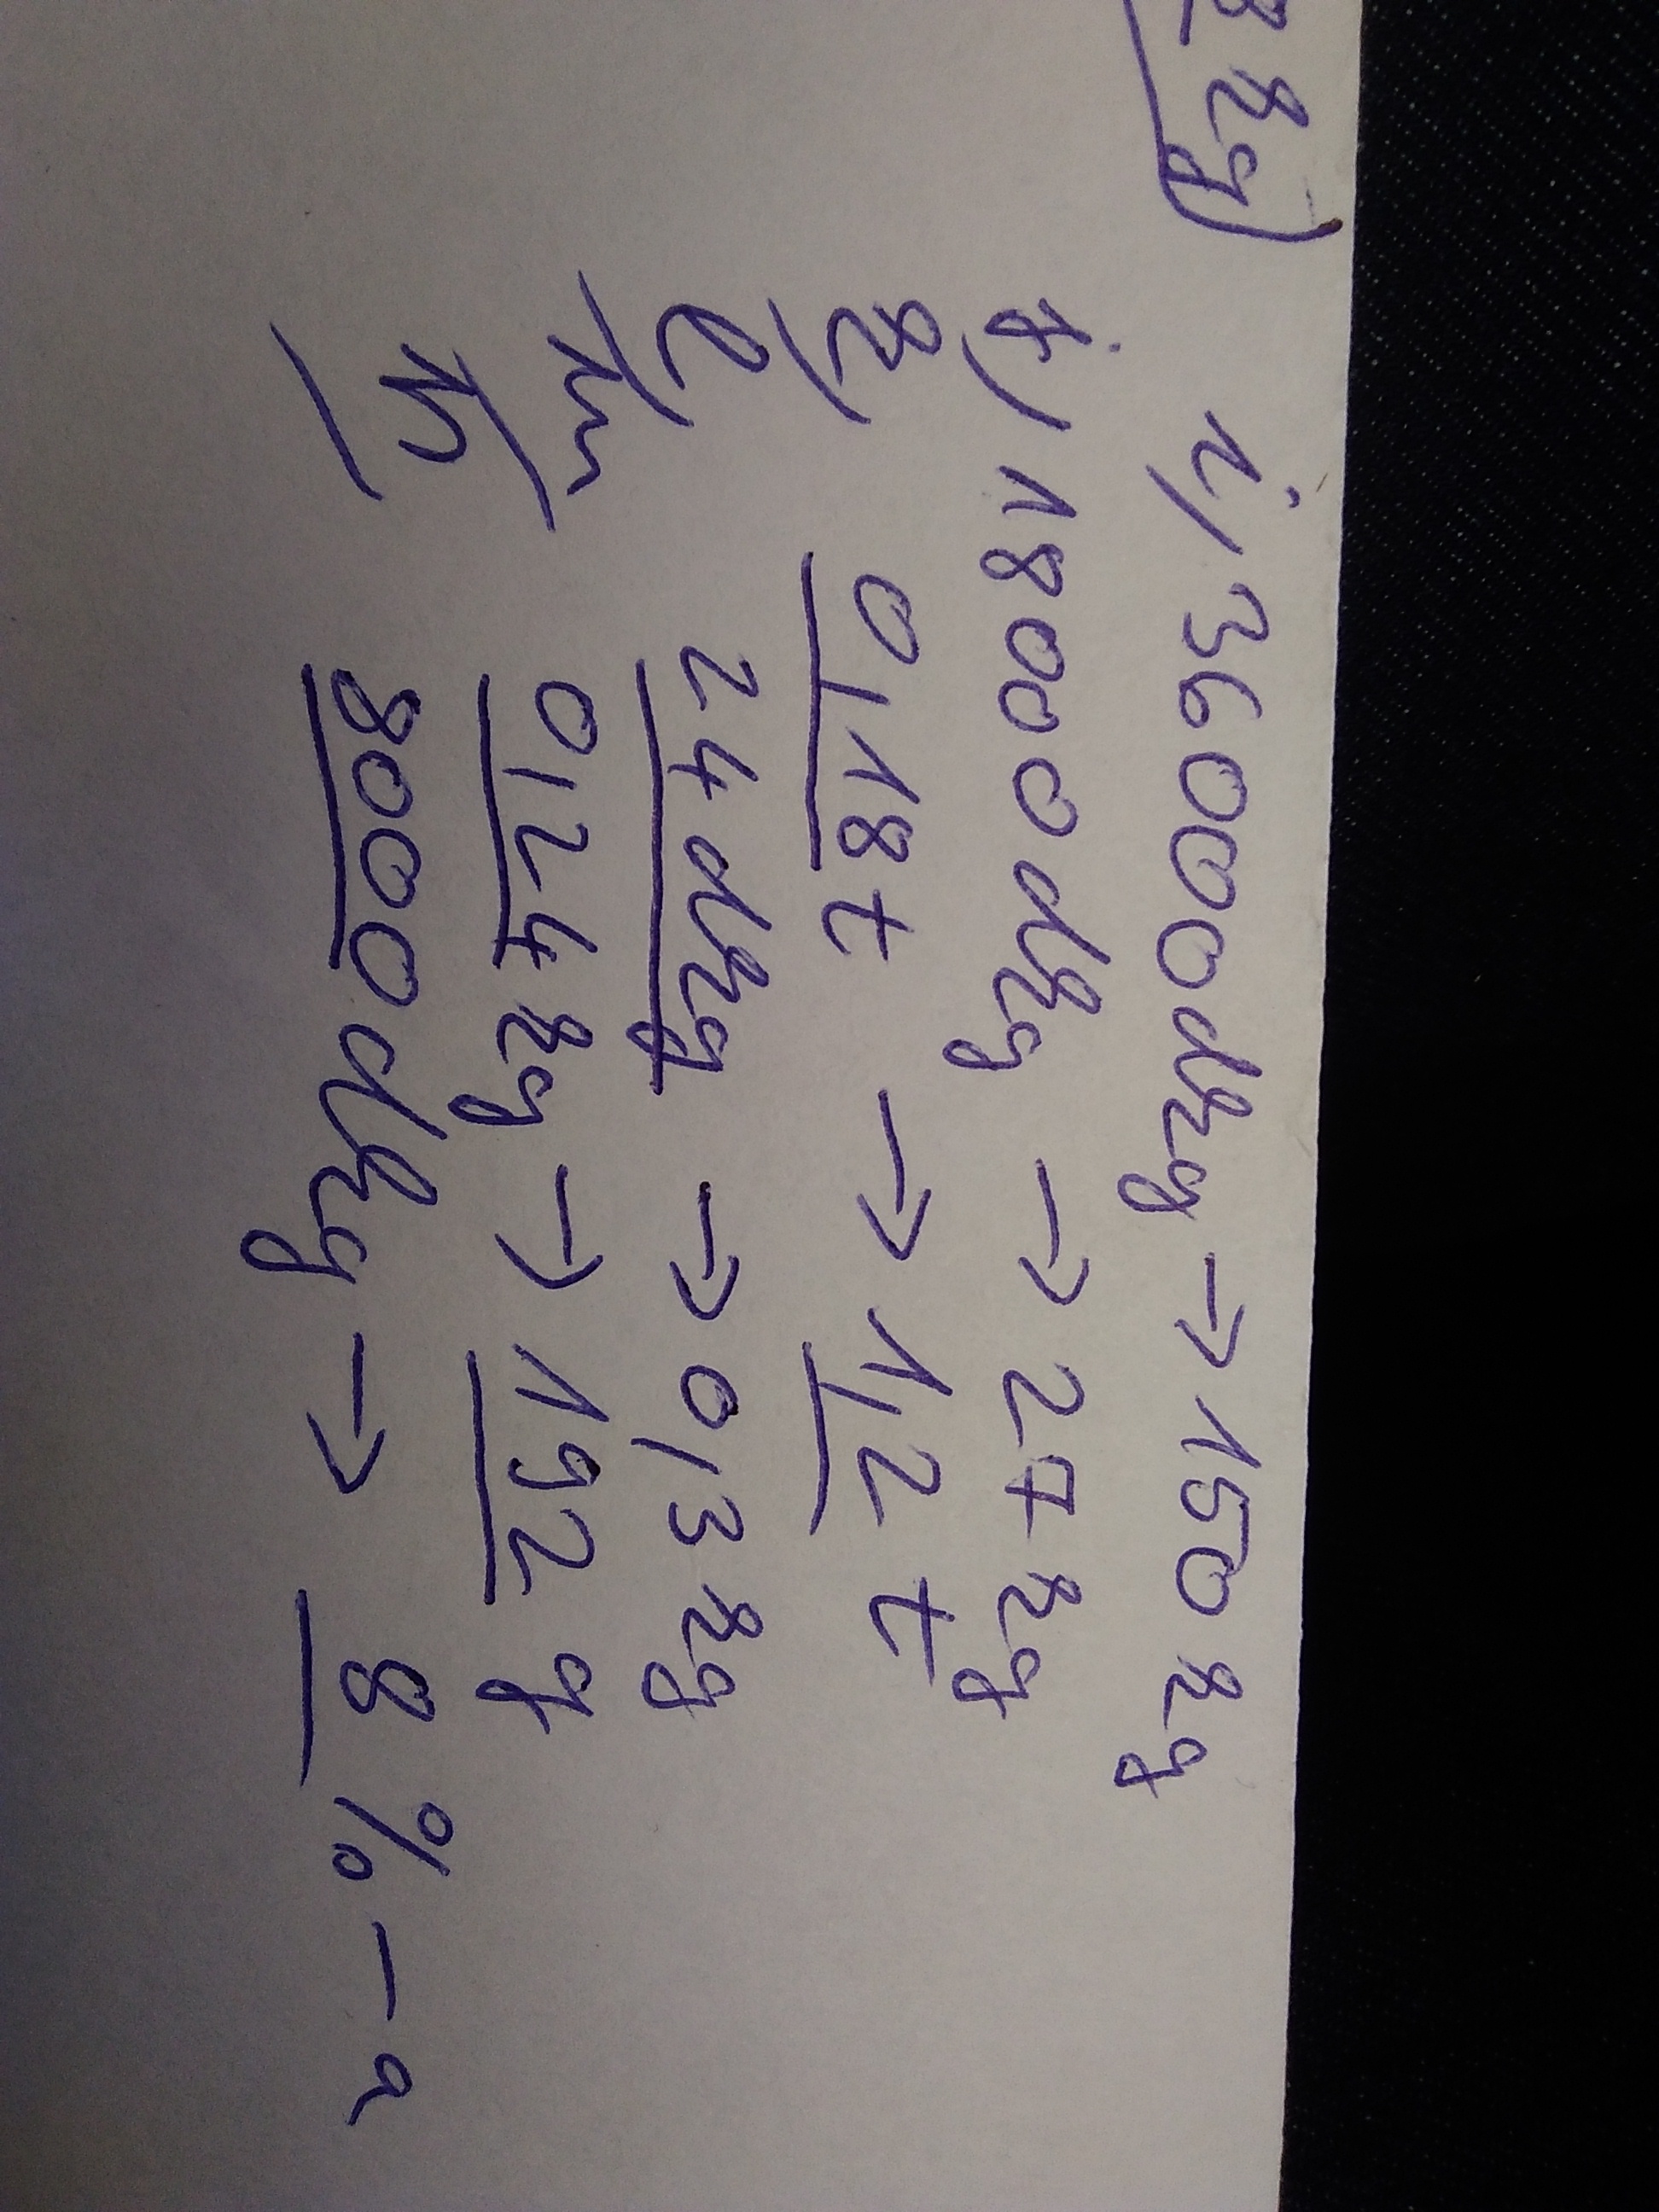 kg)
i, / 36000 dkg → 150 kg
j / 18000 dkg → 27 kg
k / 0,18 t → 1,2 t
l / 24 dkg → 0,3 kg
m / 0,24 kg → 192 g
n / 8000 dkg → 8 % - a